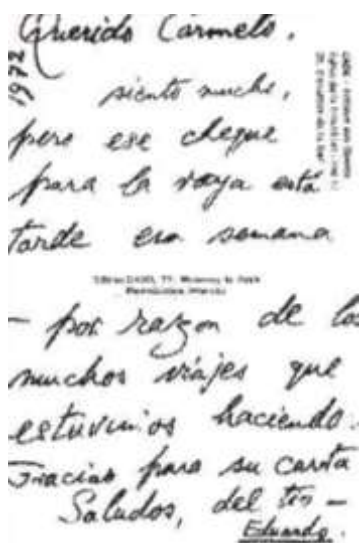 Querido Carmelo.
1972
siento mucho,
pero ese cheque
para la raya está
tarde esa semana
- por razon de los
muchos viajes que
estuvimos haciendo.
Gracias para su carta
Saludos, del tío -
Eduardo.